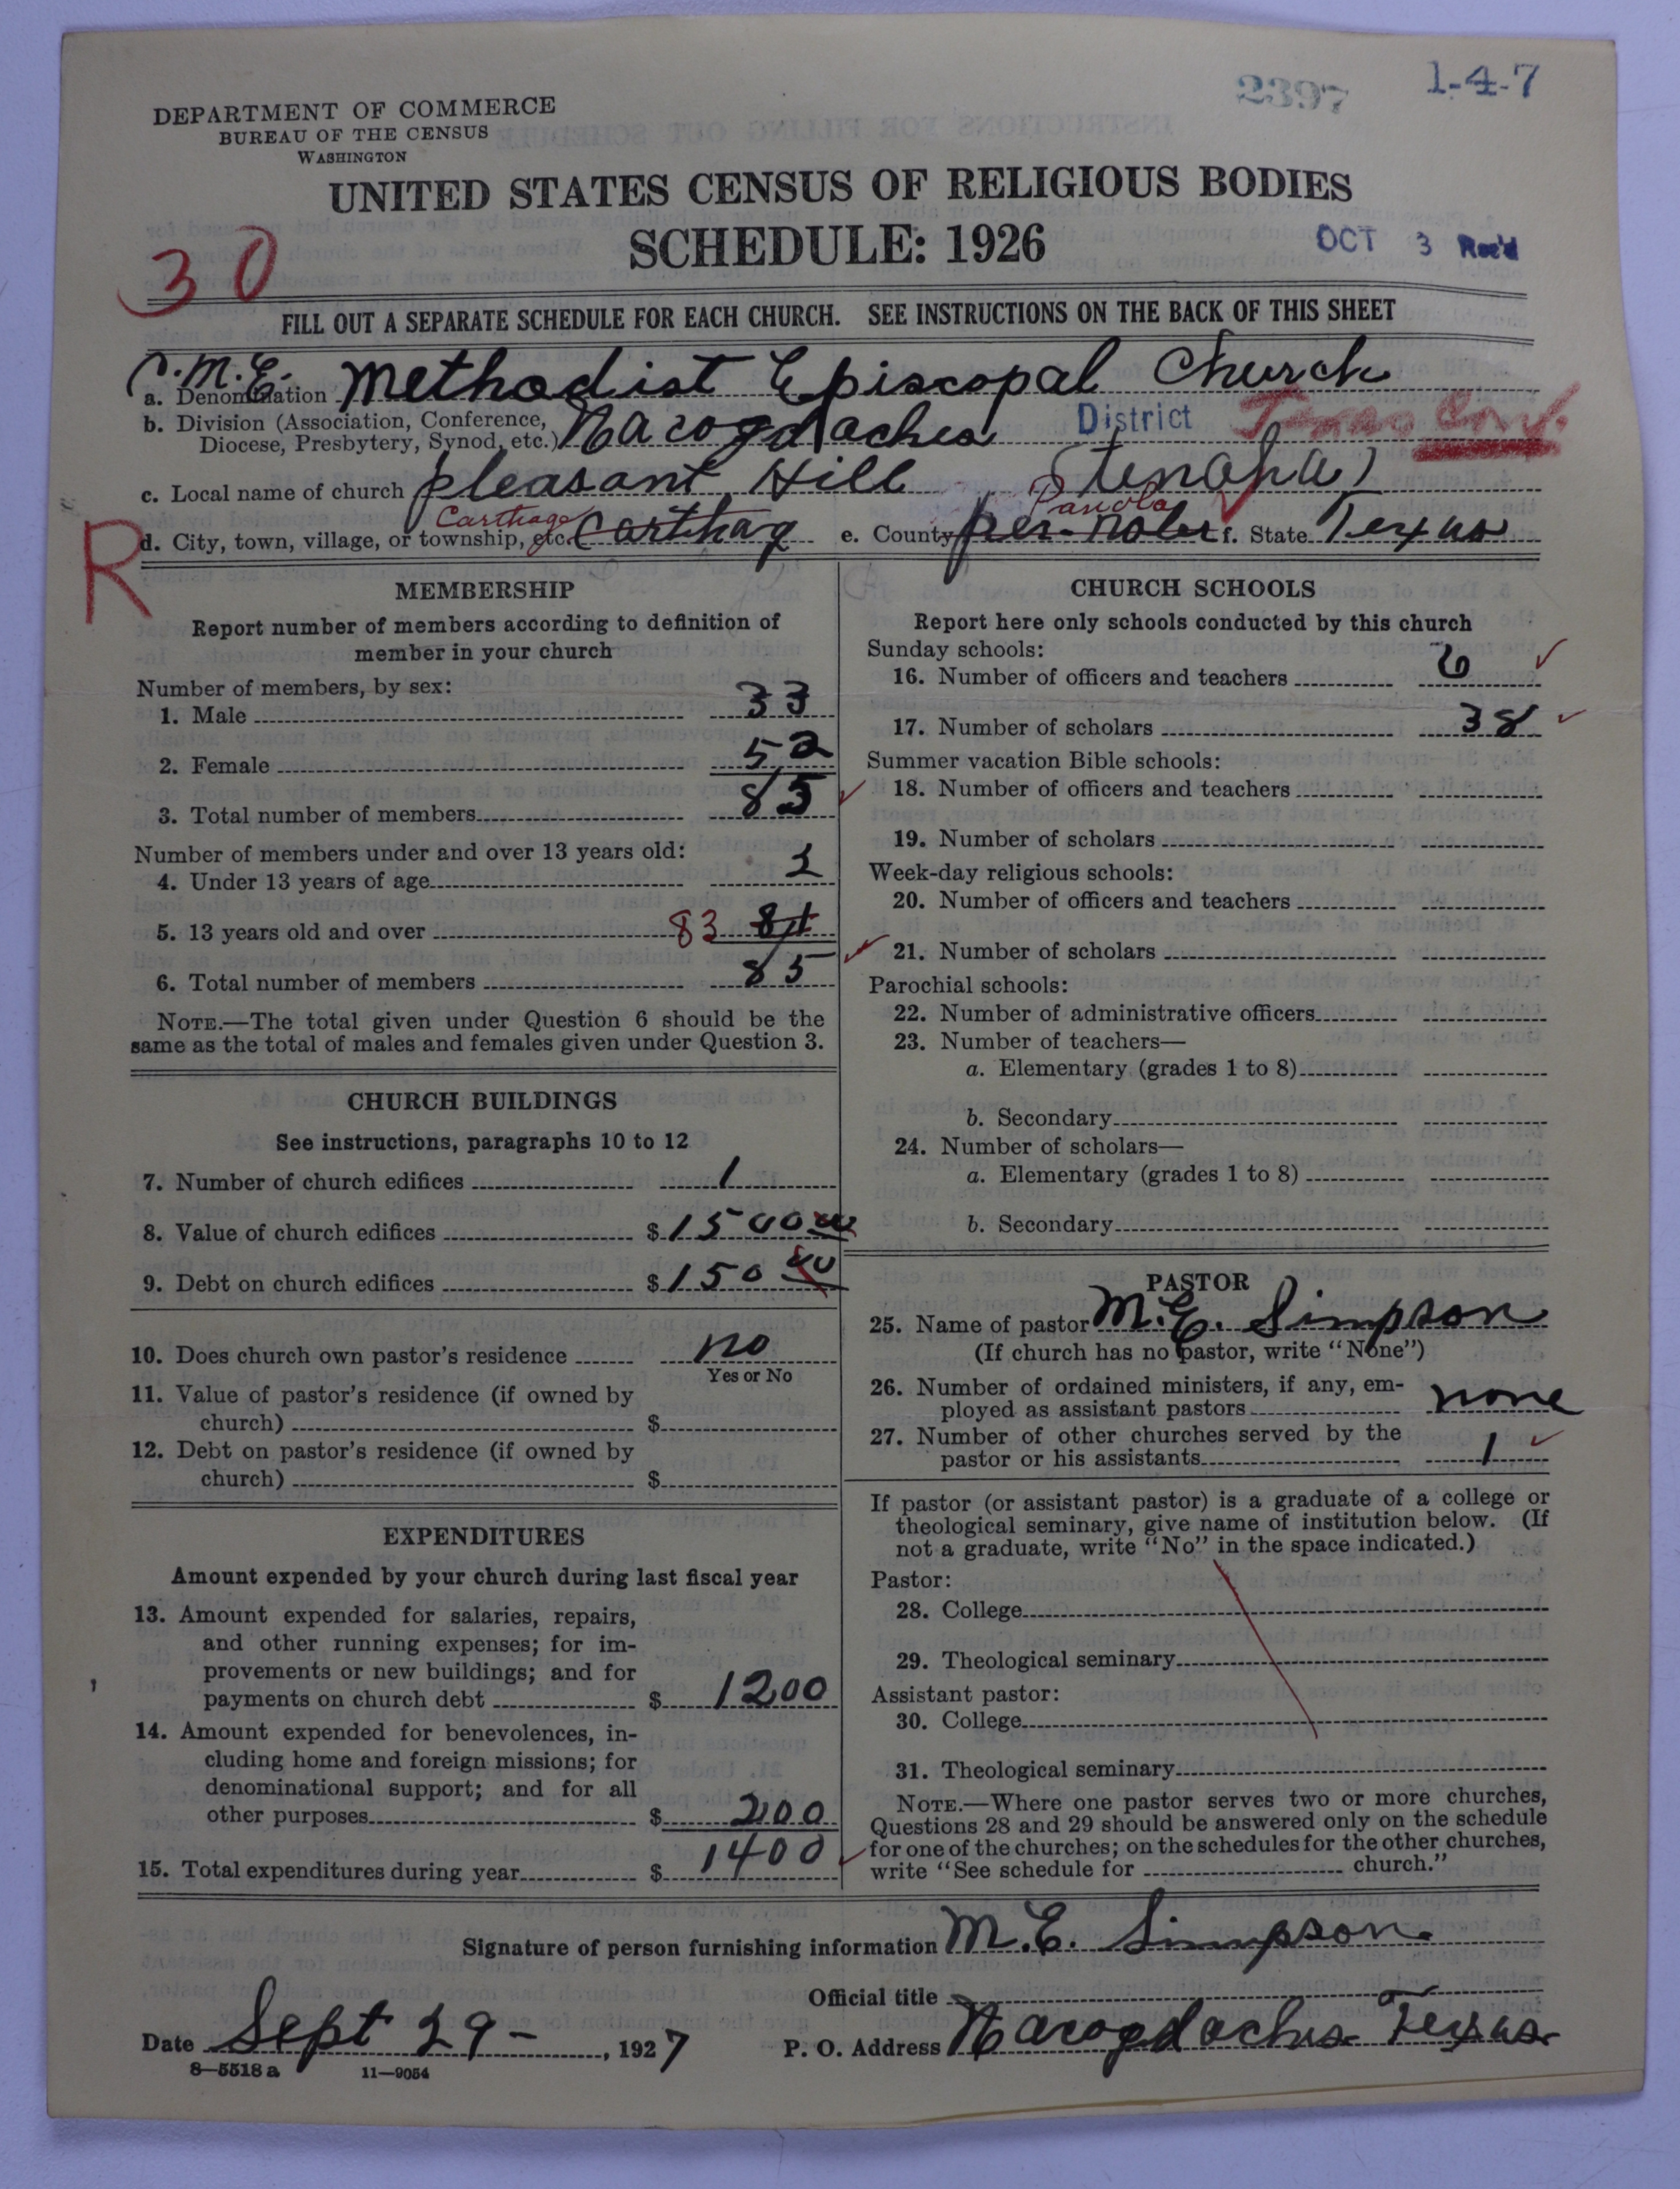 2397
1-4-7
DEPARTMENT OF COMMERCE
BUREAU OF THE CENSUS
WASHINGTON
UNITED STATES CENSUS OF RELIGIOUS BODIES
SCHEDULE: 1926
OCT 3 Rec'd
30
FILL OUT A SEPARATE SCHEDULE FOR EACH CHURCH. SEE INSTRUCTIONS ON THE BACK OF THIS SHEET
C.M.E.
a. Denomination Methodist Episcopal Church
b. Division (Association, Conference, Diocese, Presbytery, Synod, etc.) Nacogdaches District Texas Conf.
c. Local name of church pleasant Hill (Tenaha)
Carthage Panola
R
d. City, town, village, or township, etc. Carthag e. County per-noler f. State Texas
MEMBERSHIP
Report number of members according to definition of
member in your church
Number of members, by sex:
1. Male 33
2. Female 52
3. Total number of members 85
Number of members under and over 13 years old:
4. Under 13 years of age 2
5. 13 years old and over 83 81
6. Total number of members 85
NOTE.—The total given under Question 6 should be the
same as the total of males and females given under Question 3.
CHURCH BUILDINGS
See instructions, paragraphs 10 to 12
7. Number of church edifices 1
8. Value of church edifices $1500 00
9. Debt on church edifices $150 00
10. Does church own pastor's residence no
Yes or No
11. Value of pastor's residence (if owned by
church) $
12. Debt on pastor's residence (if owned by
church) $
EXPENDITURES
Amount expended by your church during last fiscal year
13. Amount expended for salaries, repairs,
and other running expenses; for im-
provements or new buildings; and for
payments on church debt $ 1200
14. Amount expended for benevolences, in-
cluding home and foreign missions; for
denominational support; and for all
other purposes $ 200
15. Total expenditures during year $ 1400
CHURCH SCHOOLS
Report here only schools conducted by this church
Sunday schools:
16. Number of officers and teachers 6
17. Number of scholars 38
Summer vacation Bible schools:
18. Number of officers and teachers
19. Number of scholars
Week-day religious schools:
20. Number of officers and teachers
21. Number of scholars
Parochial schools:
22. Number of administrative officers
23. Number of teachers—
a. Elementary (grades 1 to 8)
b. Secondary
24. Number of scholars—
a. Elementary (grades 1 to 8)
b. Secondary
PASTOR
25. Name of pastor M.E. Simpson
(If church has no pastor, write "None")
26. Number of ordained ministers, if any, em-
ployed as assistant pastors none
27. Number of other churches served by the
pastor or his assistants 1
If pastor (or assistant pastor) is a graduate of a college or
theological seminary, give name of institution below. (If
not a graduate, write "No" in the space indicated.)
Pastor:
28. College
29. Theological seminary
Assistant pastor:
30. College
31. Theological seminary
NOTE.—Where one pastor serves two or more churches,
Questions 28 and 29 should be answered only on the schedule
for one of the churches; on the schedules for the other churches,
write "See schedule for church."
Signature of person furnishing information M.E. Simpson
Official title
Date Sept 29 - , 1927 P. O. Address Nacogdoches Texas
8—5518 a 11—9054